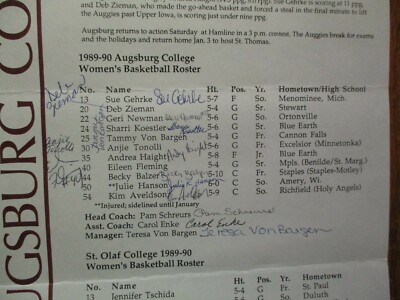 and Deb Zieman, who made the go-ahead basket and forced a steal in the final minute to lift
the Auggies past Upper Iowa, is scoring just under nine ppg.
Augsburg returns to action Saturday at Hamline in a 3 p.m. contest. The Auggies break for exams
and the holidays and return home Jan. 3 to host St. Thomas.
1989-90 Augsburg College
Women's Basketball Roster
No. Name Ht. Pos. Yr. Hometown/High School
13 Sue Gehrke Sue Gehrke 5-7 F So. Menomonie, Mich.
20 Deb Zieman 5-4 G Sr. Stewart
22 Geri Newman 5-6 G So. Ortonville
24 Sharri Koestler 5-4 G Sr. Blue Earth
25 Tammy Von Bargen 5-4 G Fr. Cannon Falls
31 Anjie Tonolli 5-2 G Fr. Excelsior (Minnetonka)
35 Andrea Haight 5-7 F Sr. Blue Earth
40 Eileen Fleming 5-4 G Sr. Mpls. (Benilde/St. Marg.)
44 Becky Balzer 6-10 C Fr. Staples (Staples-Motley)
50 \*Julie Hanson 6-0 C So. Amery, Wi.
54 Kim Aveldson 5-9 C So. Richfield (Holy Angels)
\*Injured; sidelined until January
Head Coach: Pam Schreurs Pam Schreurs
Asst. Coach: Carol Enke Carol Enke
Manager: Teresa Von Bargen Teresa Von Bargen
St. Olaf College 1989-90
Women's Basketball Roster
No. Name Ht. Pos. Yr. Hometown
13 Jennifer Tschida 5-4 G Fr. St. Paul
Duluth
AUGSBURG CO